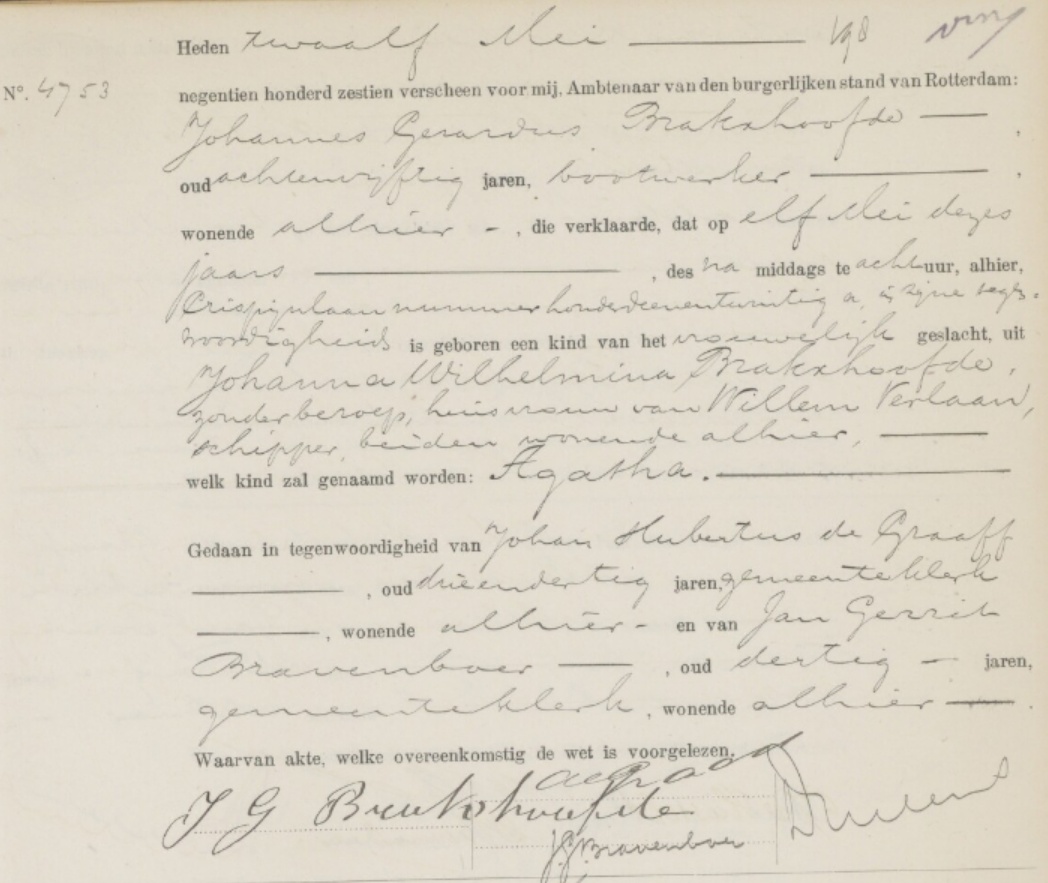 Heden twaalf Mei 198
N°. 4753
negentien honderd zestien verscheen voor mij, Ambtenaar van den burgerlijken stand van Rotterdam:
Johannes Gerardus Brakxhoofde ,
oud achtenvijftig jaren, bootwerker ,
wonende alhier - , die verklaarde, dat op elf Mei dezes
jaars , des na middags te acht uur, alhier,
Crispijnlaan nummer honderdeenentwintig a, in zijne tegen-
woordigheid is geboren een kind van het vrouwelijk geslacht, uit
Johanna Wilhelmina Brakxhoofde,
zonder beroep, huisvrouw van Willem Verlaan,
schipper, beiden wonende alhier,
welk kind zal genaamd worden: Agatha.
Gedaan in tegenwoordigheid van Johan Hubertus de Graaff
, oud drieendertig jaren, gemeenteklerk
, wonende alhier - en van Jan Gerrit
Bravenboer , oud dertig - jaren,
gemeenteklerk , wonende alhier .
Waarvan akte, welke overeenkomstig de wet is voorgelezen.
de Graaff
J G Brakshoofde
J.G. Bravenboer